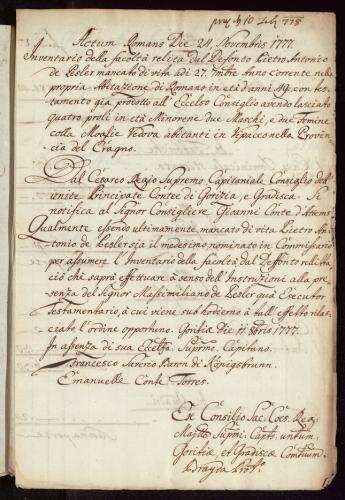 10 778
Actum Romans Die 24. Novembris 1777.
Inventario della facoltà relita dal Defonto Pietro Antonio
de Lesler mancato di vita adi 27. 7mbre Anno corrente nella
propria Abitazione di Romans in età d'anni 49. con tes-
tamento già prodotto all'Eccelso Consiglio avendo lasciato
quatro proli in età Minorene due Maschi, e due Femine
colla Moglie Vedova abitanti in Vipacco nella Provin-
cia del Cragno.
Dal Cesareo Regio Supremo Capitaniale Consiglio dell'
unite Principate Contee di Gorizia, e Gradisca. Si
notifica al Signor Consigliere Giovanni Conte d'Attems
Qualmente essendo ultimamente mancato di vita Pietro An-
tonio de Lesler sia il medesimo nominato in Commissario
per assumere l'Inventario della facoltà dal Deffonto relita
ciò che saprà effettuare à senso dell'Instruzioni alla pre-
senza del Signor Massimiliano de Lesler quà Executor
Testamentario, à cui viene sub hodierno à tall'effetto rilas-
ciato l'ordine opportuno. Goritie Die 11. 1777.
In assenza di sua Eccelza Suprmo. Capitano.
Francesco Saverio Baron di Königsbrunn.
Emanuelle Conte Torres.
Ex Consilio Sac. Reg.
Majtis Supmi. Captus.
Goritiæ, et Gradiscæ